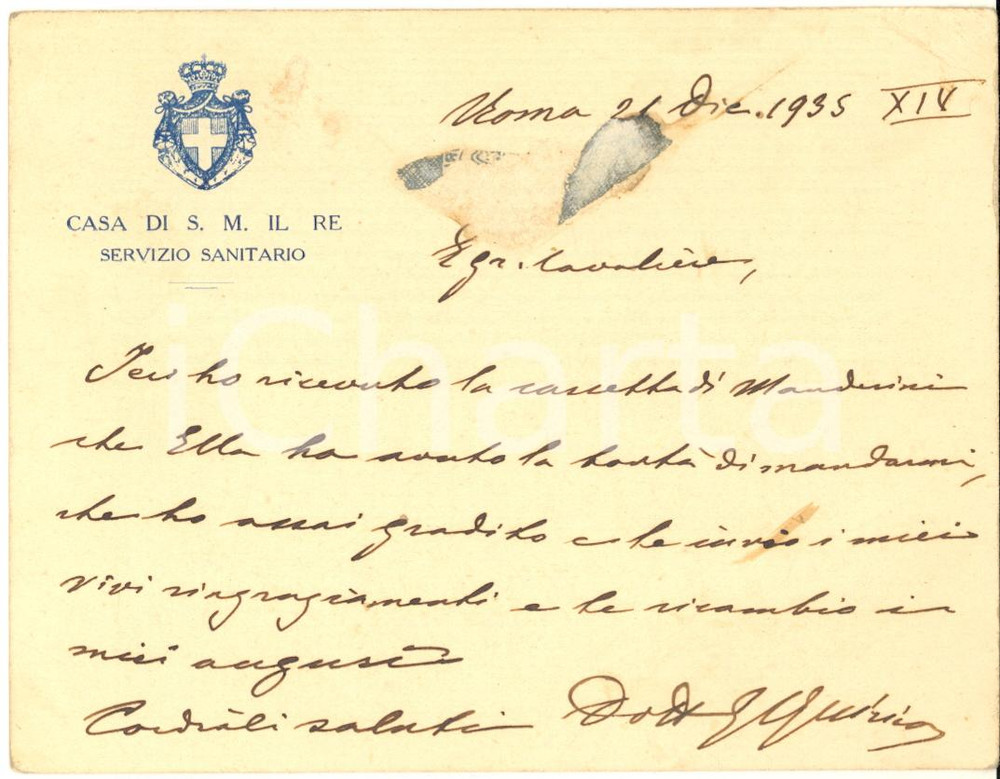 CASA DI S. M. IL RE
SERVIZIO SANITARIO
Roma 21 Dic. 1935 XIV
Egr. Cavaliere,
Ieri ho ricevuto la cassetta di Manderini
che Ella ha avuto la bontà di mandarmi,
che ho assai gradito e le invio i miei
vivi ringraziamenti e le ricambio i
miei auguri
Cordiali saluti Dott
iCharta